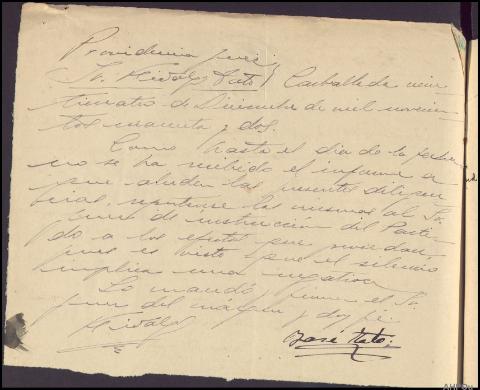 Providencia juez
Sr. Hidalgo Soto / Carballeda vein
ticuatro de Diciembre de mil novecien
tos cuarenta y dos.
Como hasta el día de la fecha
no se ha recibido el informe a
que aluden las presentes diligen
cias, repórtense las mismas al Sr.
Juez de instrucción del Parti-
do a los efectos que procedan,
pues es visto que el silencio
implica una negativa.
Lo mandó, firma el Sr.
Juez del márgen y doy fé.
Hidalgo
José Soto.